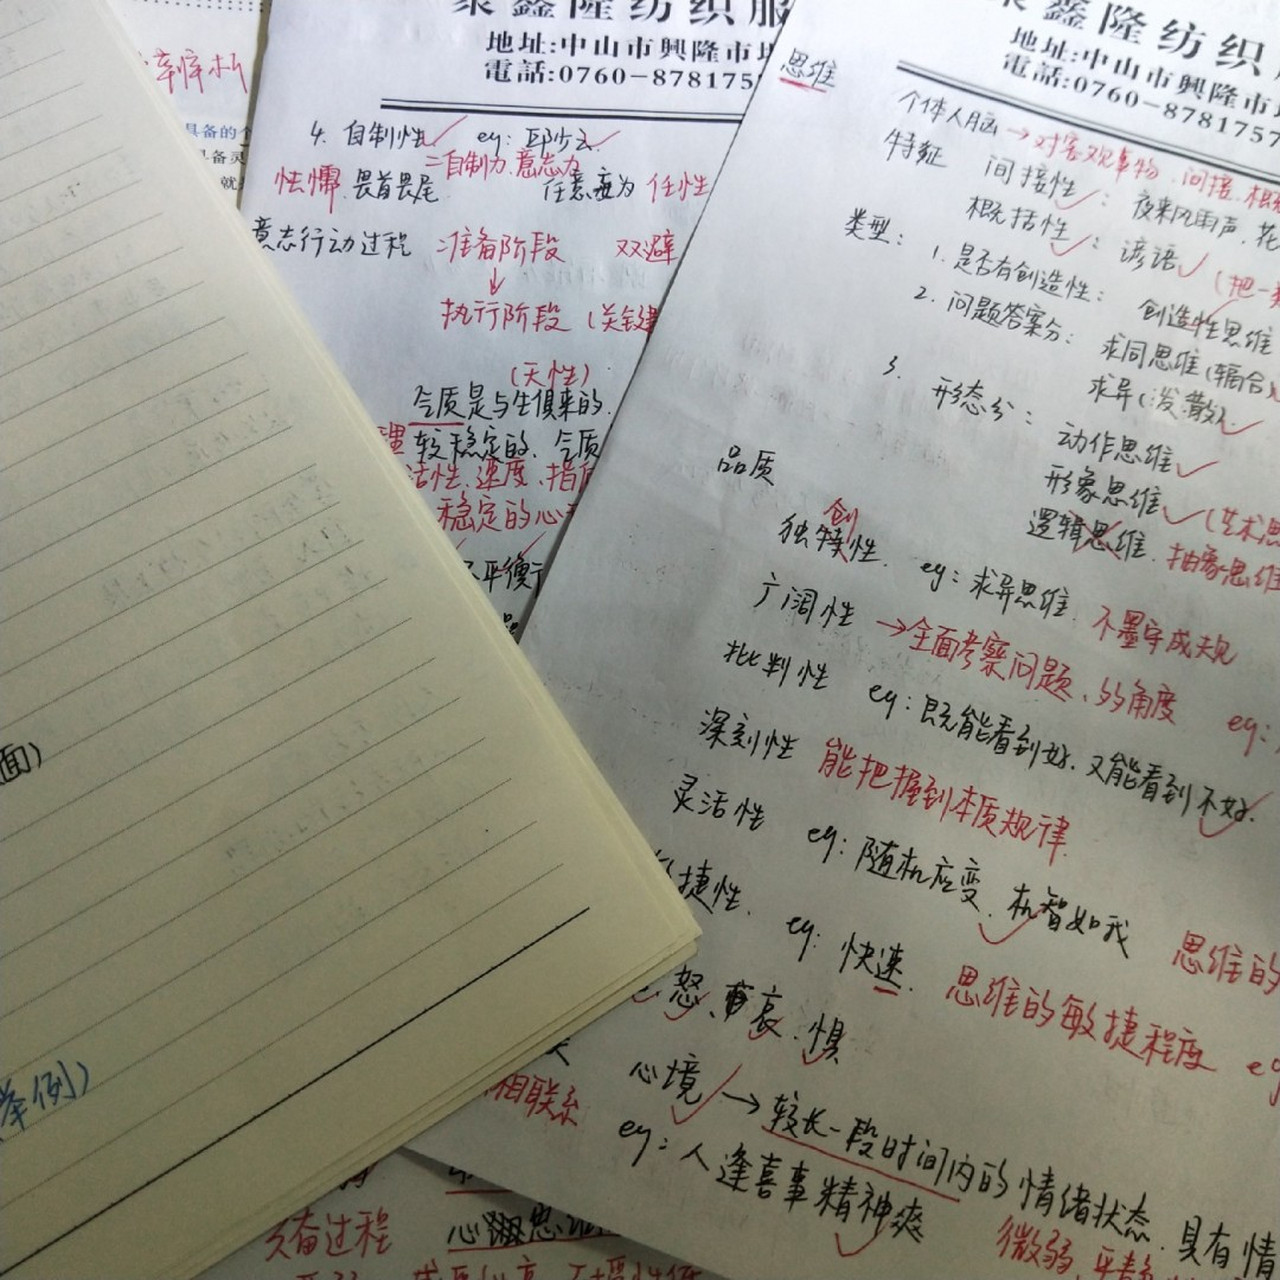 聚鑫隆纺织服
地址:中山市興隆市
電話:0760-878175
4. 自制性 eg: 邱少云
=自制力.意志力
怯懦.畏首畏尾. 任意妄为 任性
意志行动过程 准备阶段 双避
↓
执行阶段 (关键
(天性)
气质是与生俱来的.
较稳定的.气质
活性.速度.指
稳定的心
平衡
具备的
具备灵
就
面)
举例)
相联系
奋过程
鑫隆纺织
地址:中山市興隆市
電話:0760-8781757
思维
个体人脑→对客观事物.间接.概
特征 间接性: 夜来风雨声.花
概括性: 谚语 (把一
类型: 1. 是否有创造性: 创造性思维
2. 问题答案分: 求同思维(辐合)
求异(发散)
3. 形态分: 动作思维
形象思维 (艺术思
逻辑思维.抽象思维
品质
创
独特性. eg: 求异思维. 不墨守成规
广阔性 →全面考察问题、的角度 eg:
批判性 eg: 既能看到好.又能看到不好.
深刻性 能把握到本质规律
灵活性 eg: 随机应变.机智如我 思维的
捷性. eg: 快速. 思维的敏捷程度 eg
怒、哀.惧
心境 →较长一段时间内的情绪状态.具有情
eg: 人逢喜事精神爽 微弱.